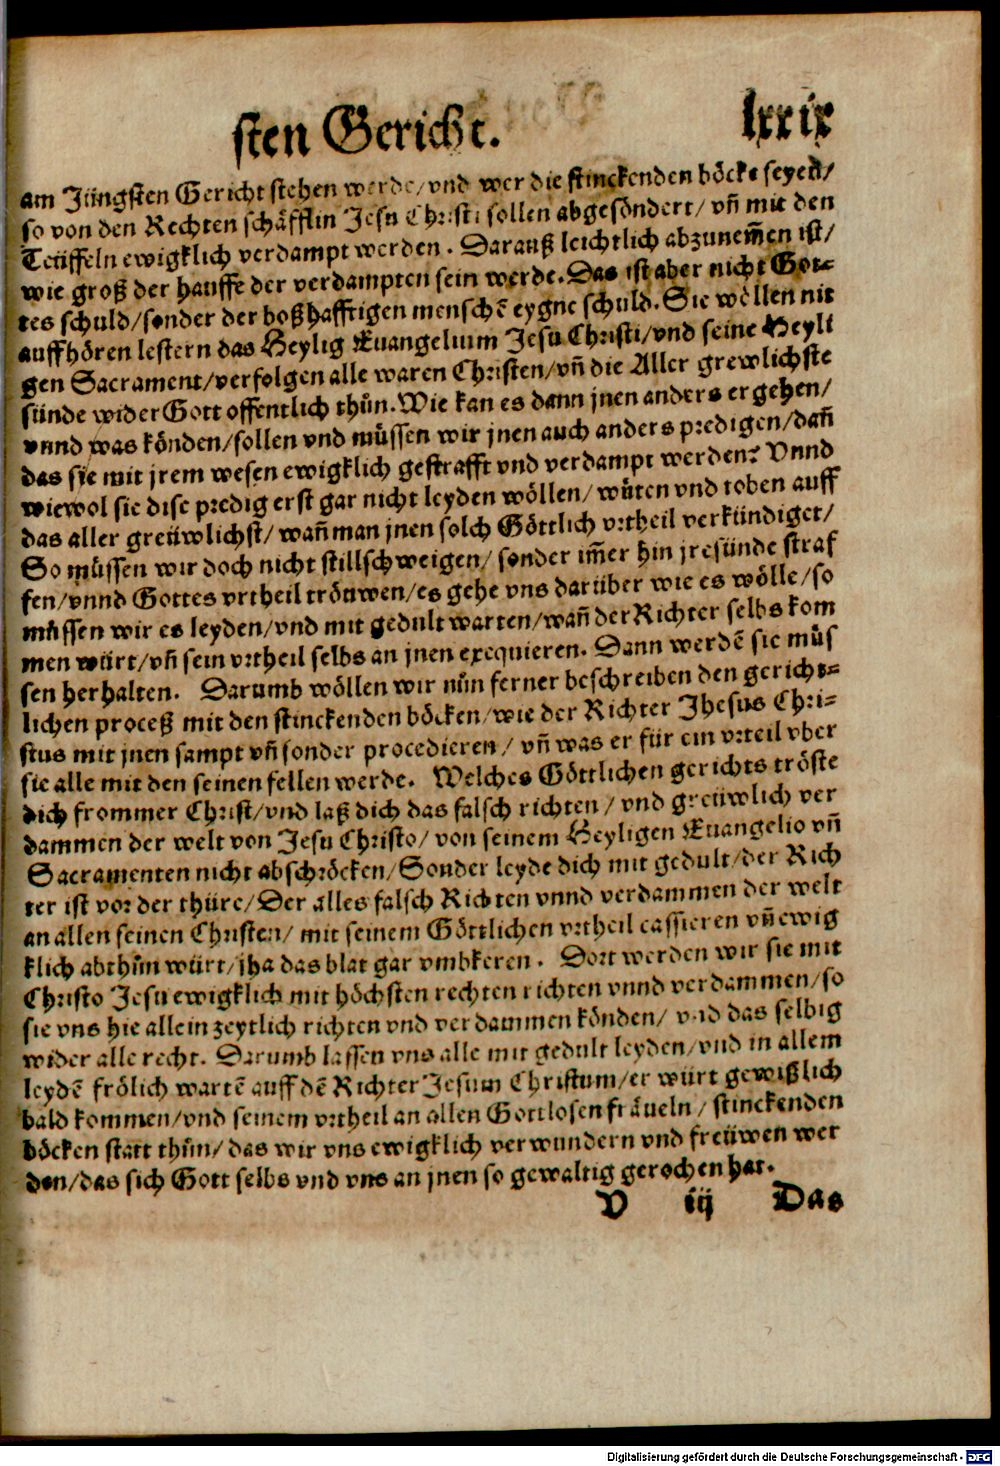 sten Gericht. lxxix
am Jüngsten Gericht stehen werde/vnd wer die stinckenden böcke seyen/
so von den Rechten schäfflin Jesu Christi sollen abgesöndert/vn̄ mit den
Teüffeln ewigklich verdampt werden. Darauß leichtlich abzunem̄en ist/
wie groß der hauffe der verdampten sein werde. Das ist aber nicht Got-
tes schuld/sonder der boßhafftigen mensche͂ eygne schuld. Sie wöllen nit
auffhören lestern das Heylig Euangelium Jesu Christi/vnd seine Heyli
gen Sacrament/verfolgen alle waren Christen/vn̄ die Aller grewlichste
sünde wider Gott offentlich thůn. Wie kan es dann jnen anders ergehen/
vnnd was könden/sollen vnd müssen wir jnen auch anders predigen/dan̄
das sie mit jrem wesen ewigklich gestrafft vnd verdampt werden? Vnnd
wiewol sie dise predig erst gar nicht leyden wöllen/wüten vnd toben auff
das aller greüwlichst/wan̄ man jnen solch Göttlich vrtheil verkündiget/
So müssen wir doch nicht stillschweigen/sonder im̄er hin jre sünde straf
fen/vnnd Gottes vrtheil tröuwen/es gehe vns darüber wie es wölle/so
müssen wir es leyden/vnd mit gedult warten/wan̄ der Richter selbs kom
men würt/vn̄ sein vrtheil selbs an jnen exequieren. Dann werde͂ sie müs
sen herhalten. Darumb wöllen wir nůn ferner beschreiben den gericht-
lichen proceß mit den stinckenden böcken/wie der Richter Jhesus Chri-
stus mit jnen sampt vn̄ sonder procedieren/vn̄ was er für ein vrteil vber
sie alle mit den seinen fellen werde. Welches Göttlichen gerichts tröste
dich frommer Christ/vnd laß dich das falsch richten/vnd greüwlich ver
dammen der welt von Jesu Christo/von seinem Heyligen Euangelio vn̄
Sacramenten nicht abschröcken/Sonder leyde dich mit gedult/der Rich
ter ist vor der thüre/Der alles falsch Richten vnnd verdammen der welt
an allen seinen Christen/mit seinem Göttlichen vrtheil cassieren vn̄ ewig
klich abthůn würt/jha das blat gar vmbkeren. Dort werden wir sie mit
Christo Jesu ewigklich mit höchsten rechten richten vnnd verdammen/so
sie vns hie allein zeytlich richten vnd verdammen könden/vnd das selbig
wider alle recht. Darumb lassen vns alle mit gedult leyden/vnd in allem
leyde͂ frölich warte͂ auff de͂ Richter Jesum Christum/er würt gewißlich
bald kommen/vnd seinem vrtheil an allen Gottlosen fräueln/stinckenden
böcken statt thůn/das wir vns ewigklich verwundern vnd freüwen wer
den/das sich Gott selbs vnd vns an jnen so gewaltig gerochen hat.
V iij Das
Digitalisierung gefördert durch die Deutsche Forschungsgemeinschaft - DFG